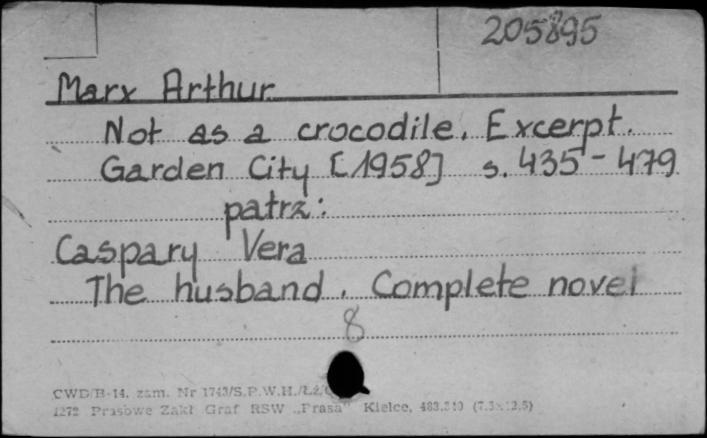 205895
Marx Arthur
Not as a crocodile. Excerpt.
Garden City [1958] s. 435-479
patrz:
Caspary Vera
The husband. Complete novel
8
CWD/B-14. zam. Nr 1743/S.P.W.H./Łź/
1272 Prasowe Zakł Graf RSW „Prasa" Kielce, (7.5x12,5)